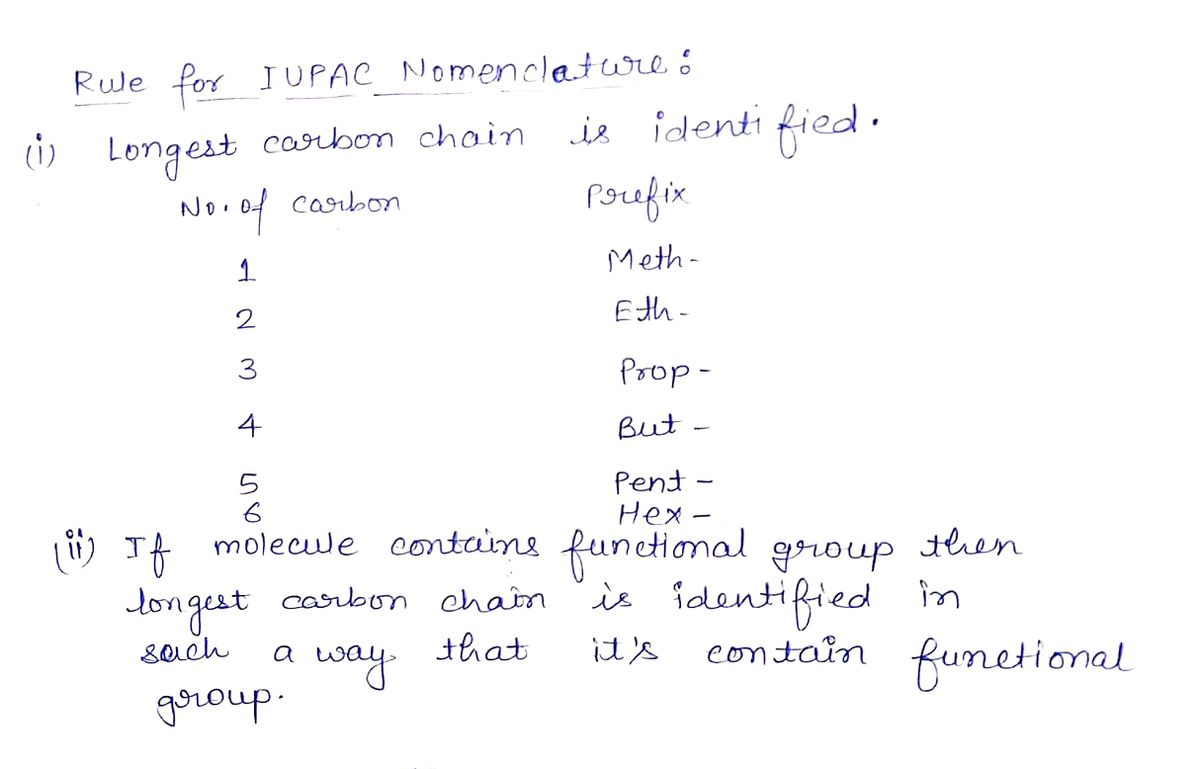 Rule for IUPAC Nomenclature:
(i) Longest carbon chain is identified.
No. of carbon Prefix
1 Meth-
2 Eth-
3 Prop-
4 But-
5 Pent-
6 Hex-
(ii) If molecule contains functional group then
longest carbon chain is identified in
such a way that it's contain functional
group.